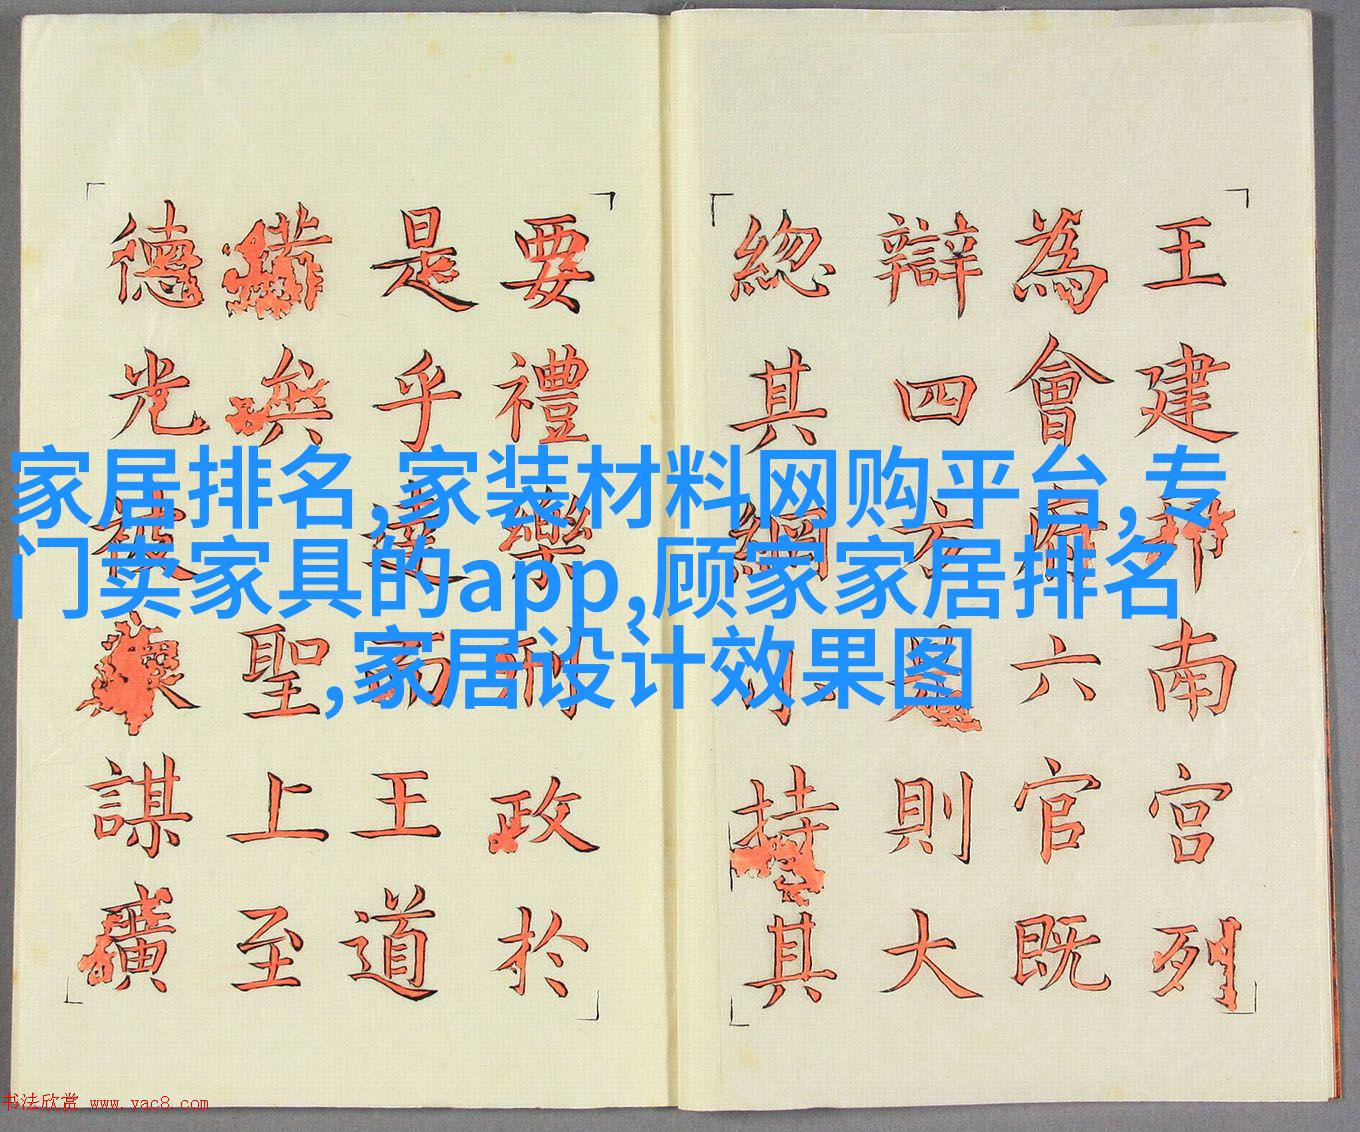 王建邦南宮列
為會府六官既
辯四方則大
緫其綱持其
要禮樂刑政於
是乎達而王道
聖上至
德光被謀
家居排名,家装材料网购平台,专
门卖家具的app,顾家家居排名
,家居设计效果图
书法欣赏 www.yac8.com